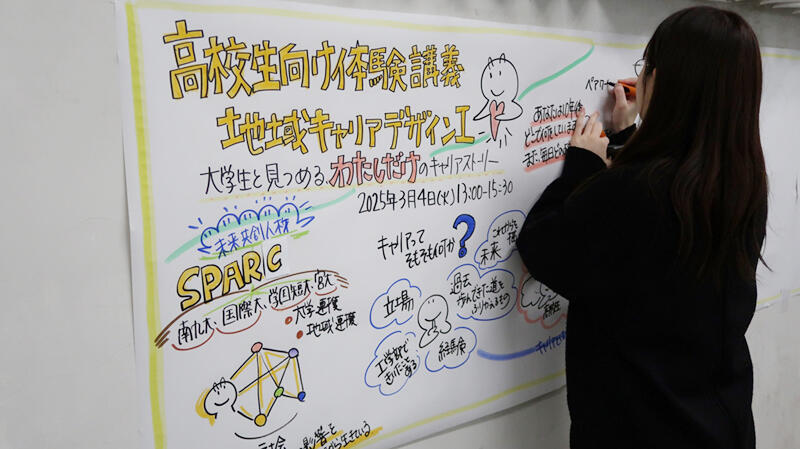 高校生向け体験講義
地域キャリアデザインⅠ
大学生と見つめる、わたしだけのキャリアストーリー
2025年3月4日(火)13:00-15:30
未来共創人材
SPARC
南九大・国際大・学園短大・宮大
・大学連携
・地域連携
キャリアって
そもそも何か?
立場
経験
過去
歩んできた道を
ふりかえるもの
未来
これから
ペアワー
あなたは10年後
どこで何をしていますか
また、毎日
影響を